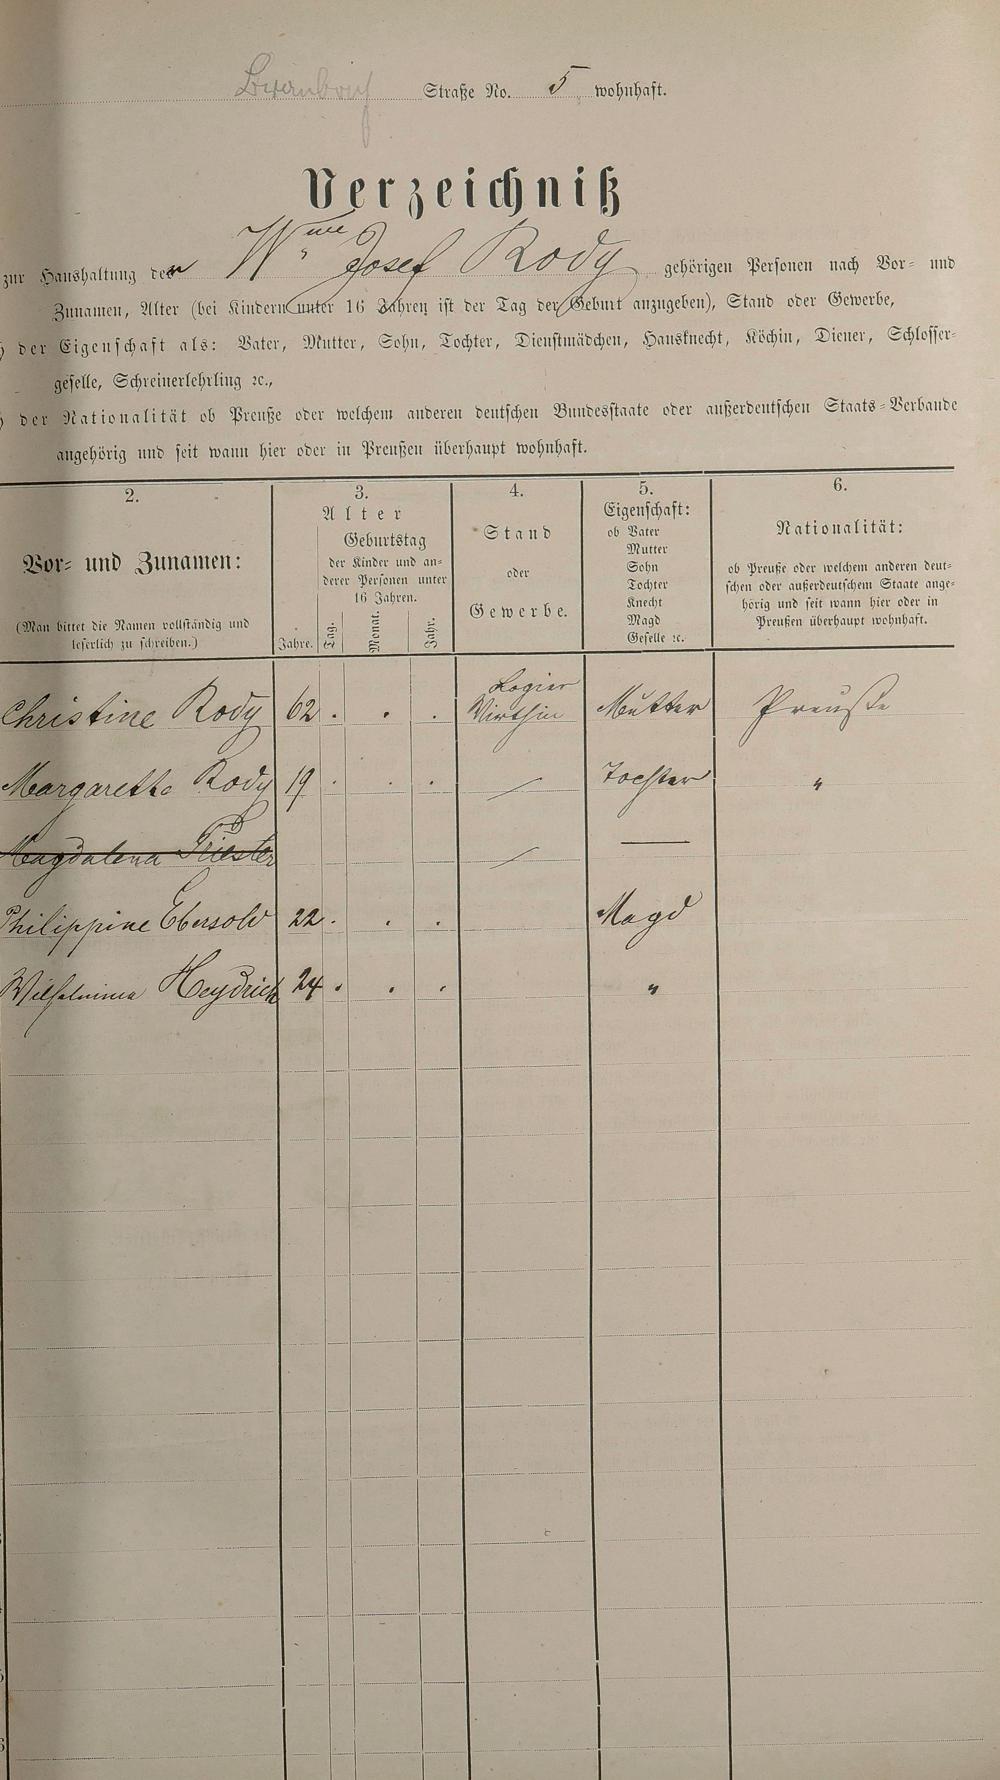 Straße No. 5 wohnhaft.
Verzeichniß
zur Haushaltung der Wwe Josef Rody gehörigen Personen nach Vor- und
Zunamen, Alter (bei Kindern unter 16 Jahren ist der Tag der Geburt anzugeben), Stand oder Gewerbe,
) der Eigenschaft als: Vater, Mutter, Sohn, Tochter, Dienstmädchen, Hausknecht, Köchin, Diener, Schlosser-
geselle, Schreinerlehrling ꝛc.,
) der Nationalität ob Preuße oder welchem anderen deutschen Bundesstaate oder außerdeutschen Staats-Verbande
angehörig und seit wann hier oder in Preußen überhaupt wohnhaft.
2.
Vor- und Zunamen:
(Man bittet die Namen vollständig und
leserlich zu schreiben.)
3.
Alter
Geburtstag
der Kinder und an-
derer Personen unter
16 Jahren.
Jahre. Tag. Monat. Jahr.
4.
Stand
oder
Gewerbe.
5.
Eigenschaft:
ob Vater
Mutter
Sohn
Tochter
Knecht
Magd
Geselle ꝛc.
6.
Nationalität:
ob Preuße oder welchem anderen deut-
schen oder außerdeutschem Staate ange-
hörig und seit wann hier oder in
Preußen überhaupt wohnhaft.
Logier
Christine Rody 62 . . . Wirthin Mutter Preuße
Margaretha Rody 19 . . . — Tochter "
Magdalena Triester — —
Philippine Ebersold 22 . . . Magd
Wilhelmina Heydrich 24 . . . "